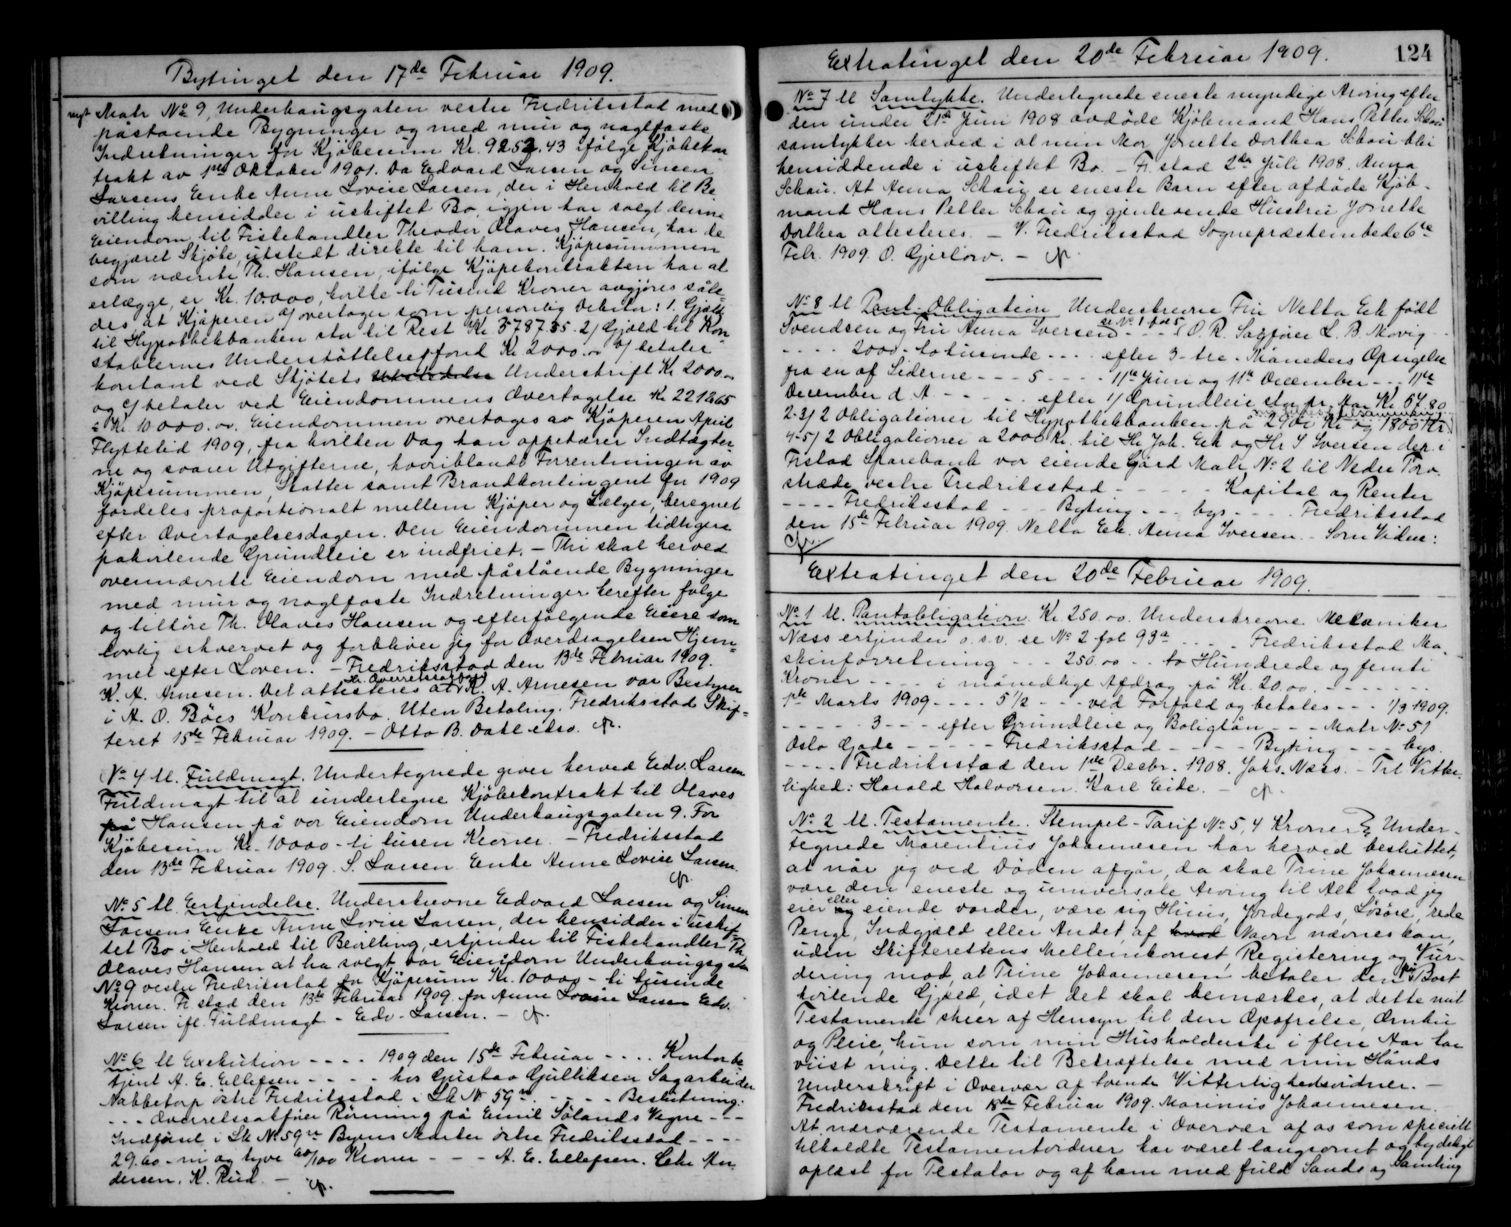 Bytinget den 17de Februar 1909.
Matr No 9, Underhaugsgaten vestre Fredriksstad med
påstaaende Bygninger og med mur og naglfaste
Indretninger for Kjøbesum Kr. 9252.43 ifølge Kjøbekon
trakt av 1ste Oktober 1901. Da Edvard Larsen og Simen
Larsens Enke Anne Lovise Larsen, der i Henhold til Be
villing hensidder i uskiftet Bo, igjen har solgt denne
Eiendom til Fiskehandler Theodor Olaves Hansen, har de
begjæret Skjøte, utstedt direkte til ham. Kjøpesummen
som nævnte Th. Hansen, ifølge Kjøpekontrakten har at
erlægge, er Kr. 10000, hvilke ti Tusind Kroner avgjøres såle-
des at Kjøperen a/ overtager som personlig Debitor: 1, Gjæld
til Hypothekbanken stor til Rest Kr 3787.35. 2/ Gjæld til Kon
stablernes Understøttelsesfond Kr 2000.00 b/ betaler
kontant ved Skjøtets Underskrift Kr 2000.00
og c/ betaler ved Eiendommens Overtagelse Kr 2212.65
= Kr. 10000.00. Eiendommen overtages av Kjøperen April
Flyttetid 1909, fra hvilken Dag han oppebærer Indtægter-
ne og svarer Utgifterne, hvoriblandt Forrentningen av
Kjøpesummen, Skatter samt Brandkontingent for 1909
fordeles proportionalt mellem Kjøper og Sælger, beregnet
efter Overtagelsesdagen. Den Eiendommen tidligere
påhvilende Grundleie er indfriet. – Thi skal herved
ovennævnte Eiendom med påstående Bygninger
med mur og naglfaste Indretninger herefter følge
og tilhøre Th. Olaves Hansen og efterfølgende Eiere som
lovlig erhvervet og forbliver jeg for Overdragelsen Hjem-
mel efter Loven. – Fredriksstad den 13de Februar 1909.
K. A. Arnesen. Det attesteres at Hr Overretssagfører K. A. Arnesen var Bestyrer
i A. O. Bøes Konkursbo. Uten Betaling. Fredriksstad Skif-
teret 15de Februar 1909. – Otto B. Dahl
No 4 M. Fuldmagt. Undertegnede giver herved Edv. Larsen
Fuldmagt til at undertegne Kjøbekontrakt til Olaves
på Hansen på vor Eiendom Underhaugsgaten 9. For
Kjøbesum Kr. 10000 – ti tusen Kroner. – Fredriksstad
den 13de Februar 1909. S. Larsen Enke Anne Lovise Larsen.
No 5 M. Erkjendelse. Underskrevne Edvard Larsen og Simen
Larsens Enke Anne Lovise Larsen, der hensidder i uskif-
tet Bo i Henhold til Bevilling, erkjender til Fiskehandler Th.
Olaves Hansen at ha solgt vor Eiendom Underhaugsgaten
No 9 vestre Fredriksstad for Kjøpesum Kr. 10000 – ti tusinde
Kroner. Fr.stad den 13de Februar 1909. for Anne Lovise Larsen Edv.
Larsen ifl. Fuldmagt – Edv. Larsen. –
No 6 M Exekution - - - - 1909 den 15de Februar - - - - Kontorbe
tjent A. E. Ellefsen - - - - hos Gustav Gulliksen Sagarbeider
Nabbetorp østre Fredriksstad - - - - Beslutning:
- - - Overretssagfører Rønning på Emil Sølands Vegne - - -
Indført i Sk No 59 Byens Marker østre Fredriksstad - - - -
29.60 – ni og tyve 60/100 Kroner - - - A. E. Ellefsen. Chr. An
dersen. K. Ruud. –
Extratinget den 20de Februar 1909.
124
No 7 M Samtykke. Undertegnede eneste myndige Arving efter
den under 21de Juni 1908 avdøde Kjøbmand Hans Petter Schau
samtykker herved i at min Mor Jonette Dorthea Schau blir
hensiddende i uskiftet Bo. – Fr.stad 2den Juli 1908. Anna
Schau. At Anna Schau er eneste Barn efter afdøde Kjøb-
mand Hans Petter Schau og gjenlevende Hustru Jonette
Dorthea attesteres. – V. Fredriksstad Sognepræstembede 6te
Febr. 1909. O. Gjerløw. –
No 8 M Pant-Obligation Underskrevne Fru Netta Eek født
Svendsen og Fru Anna Iversen se No 1 fol 5 - - - O. R. Sagfører L. B. Movig
- - - - 2000 – to tusinde - - - efter 3 – tre – Maaneders Opsigelse
fra en af Siderne - - - 5 - - - - 11te Juni og 11te December - - - 11te
December d. A - - - - - efter 1/ Grundleie Kr 67.80
2-3/ 2 Obligationer til Hypothekbanken på 2900 Kr og 1800 Kr
4-5/ 2 Obligationer a 2000 Kr. til Hr Joh. Eek og Hr S Iversen dep. i
Fr.stad Sparebank vor eiende Gård Matr No 2 til Nedre Torv
stræde vestre Fredriksstad - - - - - Kapital og Renter
- - - - Fredriksstad - - - Byting - - - bys. - - - Fredriksstad
den 15de Februar 1909. Netta Eek. Anna Iversen. – Som Vidne:
Extratinget den 20de Februar 1909.
No 1 M. Pantobligation Kr. 250.00. Underskrevne Mekaniker
Næss erkjender o.s.v. se No 2 fol 93a - - Fredriksstad Ma-
skinforretning - - - 250.00 – to Hundrede og femti
Kroner - - - i månedlige Afdrag på Kr. 20.00. - - - - - -
1ste Marts 1909 - - - - 5 1/2 - - - ved Forfald og betales - - - 1/3 1909.
- - - - - 3 - - - efter Grundleie og Boliglån - - - Matr No 51
Oslo Gade - - - - - Fredriksstad - - - - Byting - - - bys.
- - - - Fredriksstad den 1ste Decbr. 1908. Johs. Næss. – Til Vitter-
lighed: Harald Halvorsen. Karl Eide. –
No 2 M. Testamente. Stempel-Tarif No 5, 4 Kroner. Under-
tegnede Marentius Johannesen har herved besluttet,
at når jeg ved Døden afgår, da skal Trine Johannesen
være den eneste og universale Arving til Alt hvad jeg
eier eller eiende vorder, være sig Huus, Jordegods, Løsøre, rede
Penge, Indgjæld eller Andet, af hvad Navn nævnes kan,
uden Skifterettens Mellemkomst, Registering og Vur-
dering mod, at Trine Johannesen betaler den på Boet
hvilende Gjæld, idet det skal bemærkes, at dette mit
Testamente skeer af Hensyn til den Opofrelse, Omhu
og Pleie, hun som min Husholderske i flere Aar har
viist mig. Dette til Bekræftelse med min Hånds
Underskrift i Overvær af tvende Vitterlighedsvidner. –
Fredriksstad den 18de Februar 1909. Marinius Johannesen.
At nærværende Testamente i Overvær af os som specielt
tilkaldte Testamentvidner har været langsomt og tydeligt
oplæst for Testator og af ham med fuld Sands og Samling